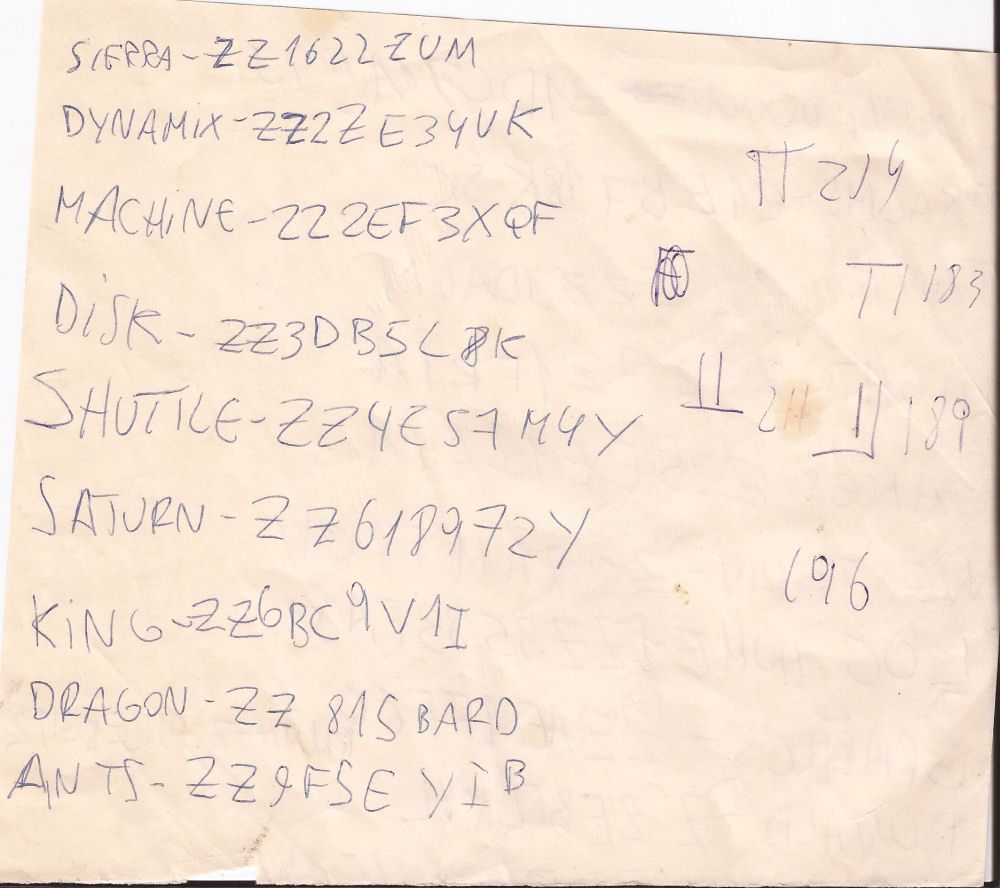 SIERRA-ZZ1622ZUM
DYNAMIX-ZZ2ZE34VK
MACHINE-222EF3XQF
DISK-ZZ3DB5L8K
SHUTTLE-ZZ4E57M4Y
SATURN-ZZ618972Y
KING-ZZ6BC9V1I
DRAGON-ZZ815BARD
ANTS-ZZ9F5EYIB
214
183
189
196